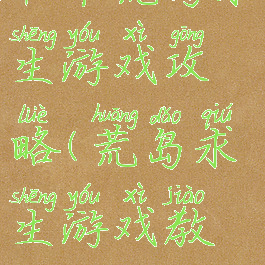 shēng yóu xì gōng
生游戏攻
lüè huāng dǎo qiú
略(荒岛求
shēng yóu xì jiào
生游戏教